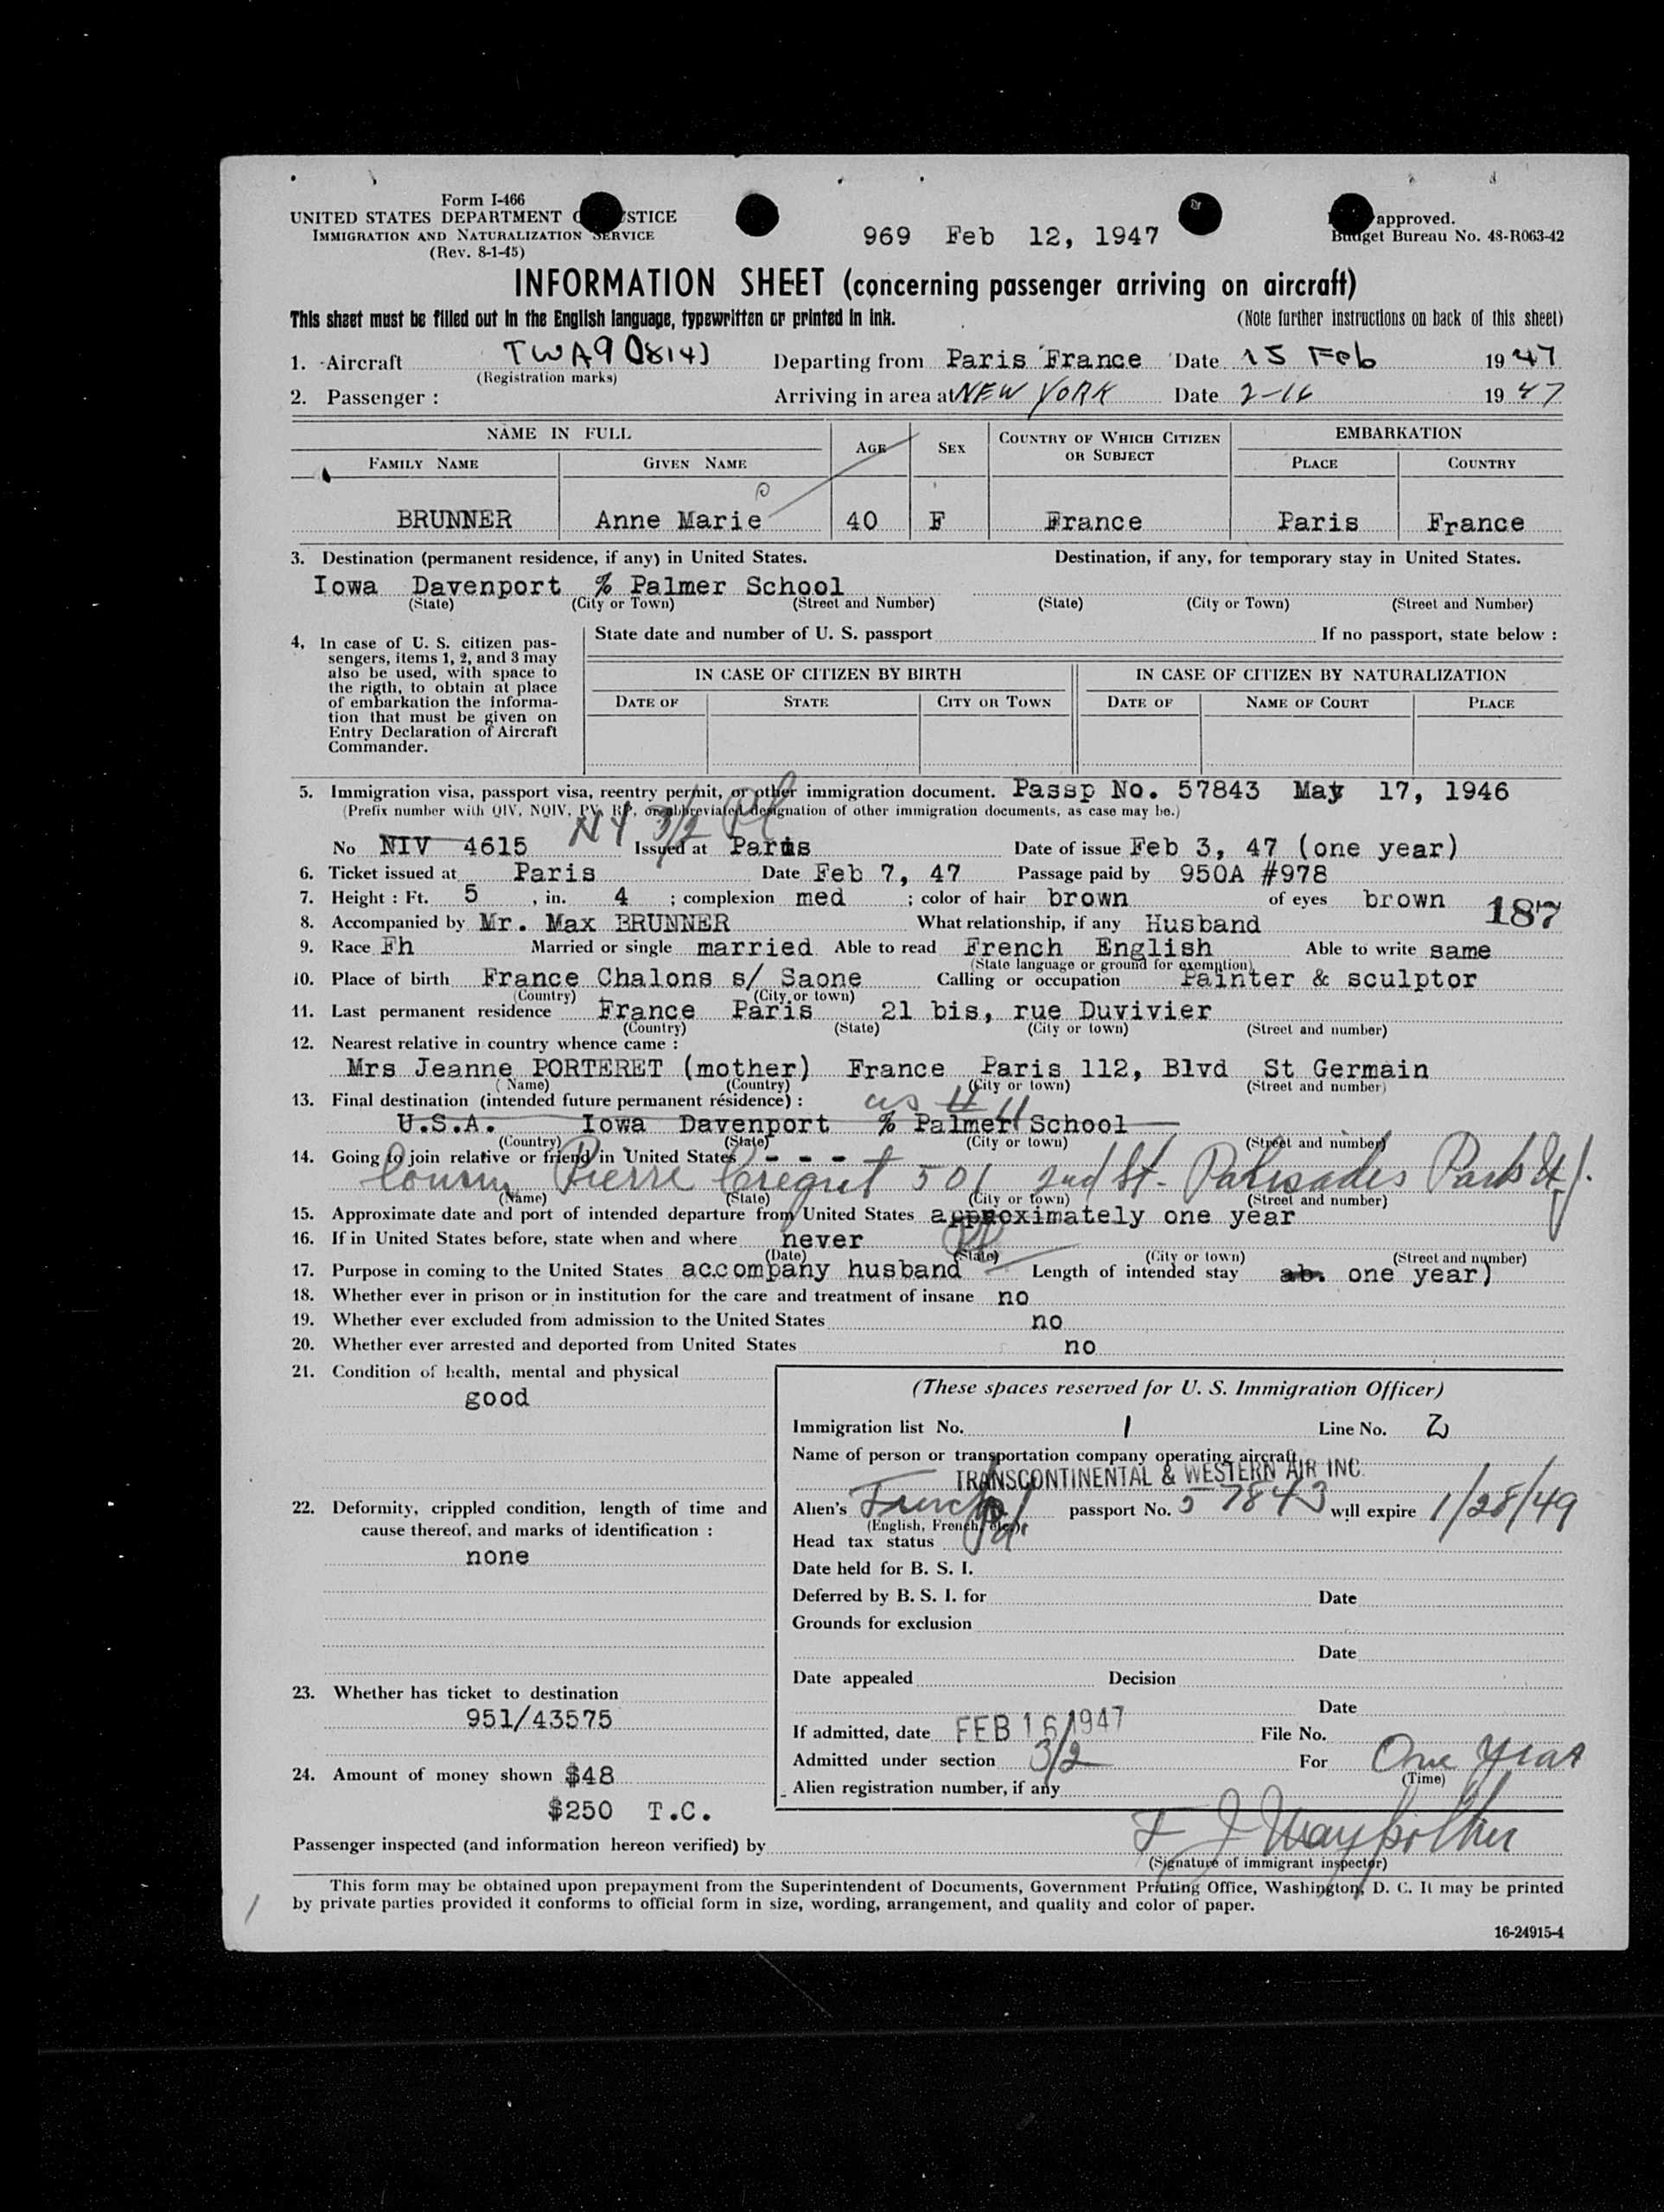 Form I-466
UNITED STATES DEPARTMENT STICE
IMMIGRATION AND NATURALIZATION SERVICE
(Rev. 8-1-45)
approved.
Budget Bureau No. 43-R063-42
969 Feb 12, 1947
INFORMATION SHEET (concerning passenger arriving on aircraft)
This sheet must be filled out in the English language, typewritten or printed in ink. (Note further instructions on back of this sheet)
1. Aircraft TWA 90 (814) Departing from Paris France Date 15 Feb 1947
(Registration marks)
2. Passenger : Arriving in area at NEW YORK Date 2-16 1947
NAME IN FULL AGE SEX COUNTRY OF WHICH CITIZEN OR SUBJECT EMBARKATION
FAMILY NAME GIVEN NAME PLACE COUNTRY
BRUNNER Anne Marie 40 F France Paris France
3. Destination (permanent residence, if any) in United States. Destination, if any, for temporary stay in United States.
Iowa Davenport % Palmer School
(State) (City or Town) (Street and Number) (State) (City or Town) (Street and Number)
4. In case of U. S. citizen pas-
sengers, items 1, 2, and 3 may
also be used, with space to
the rigth, to obtain at place
of embarkation the informa-
tion that must be given on
Entry Declaration of Aircraft
Commander.
State date and number of U. S. passport If no passport, state below :
IN CASE OF CITIZEN BY BIRTH IN CASE OF CITIZEN BY NATURALIZATION
DATE OF STATE CITY OR TOWN DATE OF NAME OF COURT PLACE
5. Immigration visa, passport visa, reentry permit, or other immigration document. Passp No. 57843 May 17, 1946
(Prefix number with QIV, NQIV, PV, RP, or abbreviated designation of other immigration documents, as case may be.)
NY 3/2
No NIV 4615 Issued at Paris Date of issue Feb 3, 47 (one year)
6. Ticket issued at Paris Date Feb 7, 47 Passage paid by 950A #978
7. Height : Ft. 5 , in. 4 ; complexion med ; color of hair brown of eyes brown
187
8. Accompanied by Mr. Max BRUNNER What relationship, if any Husband
9. Race Fh Married or single married Able to read French English Able to write same
(State language or ground for exemption)
10. Place of birth France Chalons s/ Saone Calling or occupation Painter & sculptor
(Country) (City or town)
11. Last permanent residence France Paris 21 bis, rue Duvivier
(Country) (State) (City or town) (Street and number)
12. Nearest relative in country whence came :
Mrs Jeanne PORTERET (mother) France Paris 112, Blvd St Germain
(Name) (Country) (City or town) (Street and number)
13. Final destination (intended future permanent résidence) : as # 11
U.S.A. Iowa Davenport % Palmer School
(Country) (State) (City or town) (Street and number)
14. Going to join relative or friend in United States - - - -
Cousin Pierre 501 2nd St. Palisades Park NJ.
(Name) (State) (City or town) (Street and number)
15. Approximate date and port of intended departure from United States approximately one year
16. If in United States before, state when and where never
(Date) (State) (City or town) (Street and number)
17. Purpose in coming to the United States accompany husband Length of intended stay ab. one year)
18. Whether ever in prison or in institution for the care and treatment of insane no
19. Whether ever excluded from admission to the United States no
20. Whether ever arrested and deported from United States no
21. Condition of health, mental and physical
good
22. Deformity, crippled condition, length of time and
cause thereof, and marks of identification :
none
23. Whether has ticket to destination
951/43575
24. Amount of money shown $48
$250 T.C.
(These spaces reserved for U. S. Immigration Officer)
Immigration list No. 1 Line No. 2
Name of person or transportation company operating aircraft
TRANSCONTINENTAL & WESTERN AIR INC.
Alien's French passport No. 57843 will expire 1/28/49
(English, French, etc.)
Head tax status
Date held for B. S. I.
Deferred by B. S. I. for Date
Grounds for exclusion
Date
Date appealed Decision
Date
If admitted, date FEB 16 1947 File No.
Admitted under section 3/2 For One Year
(Time)
Alien registration number, if any
Passenger inspected (and information hereon verified) by
(Signature of immigrant inspector)
This form may be obtained upon prepayment from the Superintendent of Documents, Government Printing Office, Washington, D. C. It may be printed
by private parties provided it conforms to official form in size, wording, arrangement, and quality and color of paper.
16-24915-4